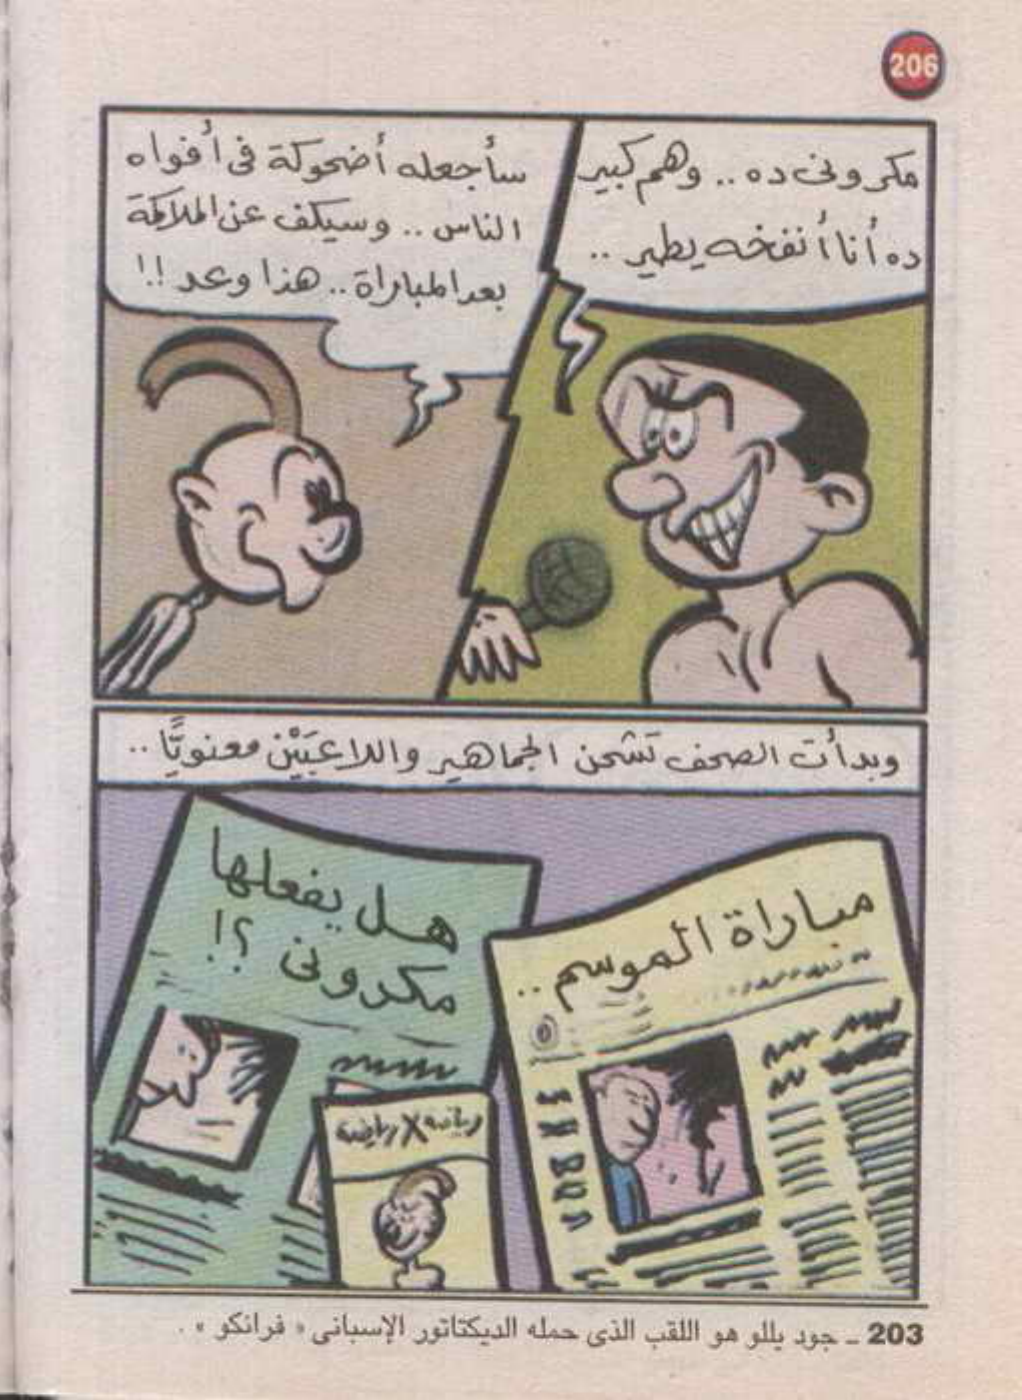 206
مكرونى ده .. وهم كبير
ده أنا أنفخه يطير ..
سأجعله أضحوكة فى أفواه
الناس .. وسيكف عن الملاكمة
بعد المباراة .. هذا وعد !!
وبدأت الصحف تشحن الجماهير واللاعبَيْن معنويًّا ..
مباراة الموسم ..
هل يفعلها
مكرونى ؟!
رياضة X رياضة
203 ــ جود يللو هو اللقب الذى حمله الديكتاتور الإسبانى « فرانكو » .